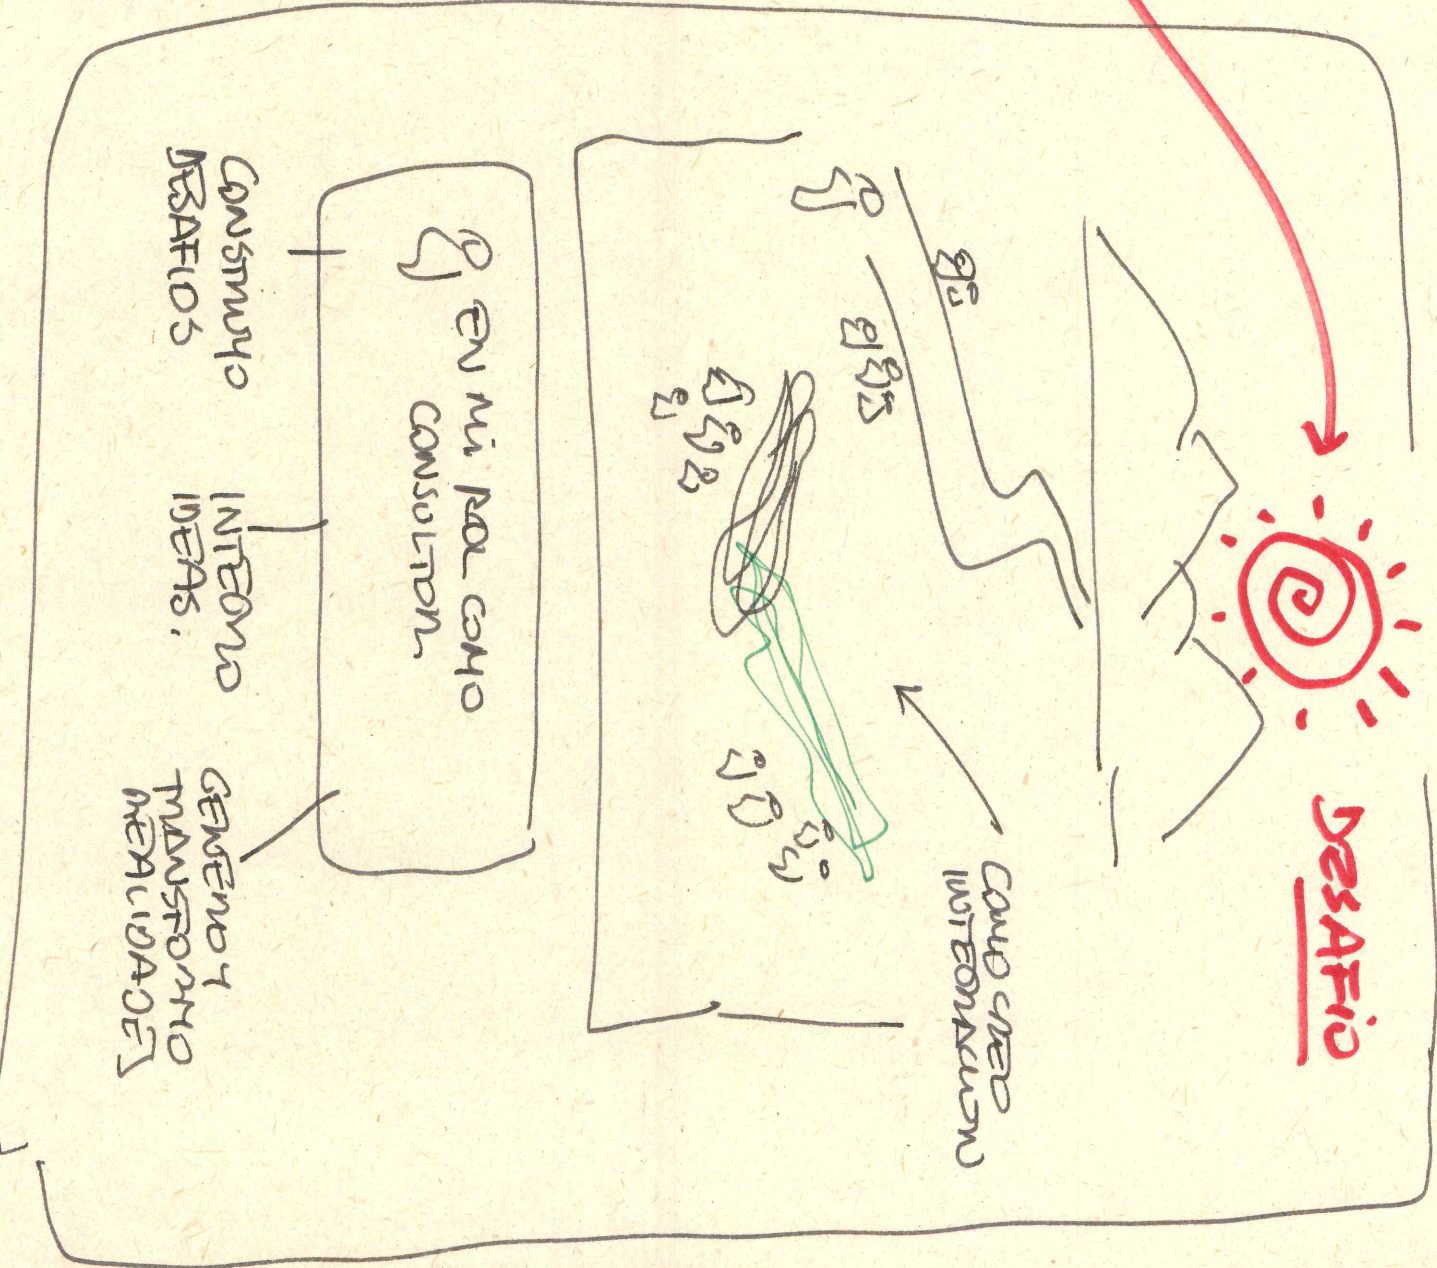 DESAFIO
COMO CREO
INTEGRACION
EN MI ROL COMO
CONSULTOR
CONSTRUYO
DESAFIOS
INTEGRO
IDEAS.
GENERO Y
TRANSFORMO
REALIDADES